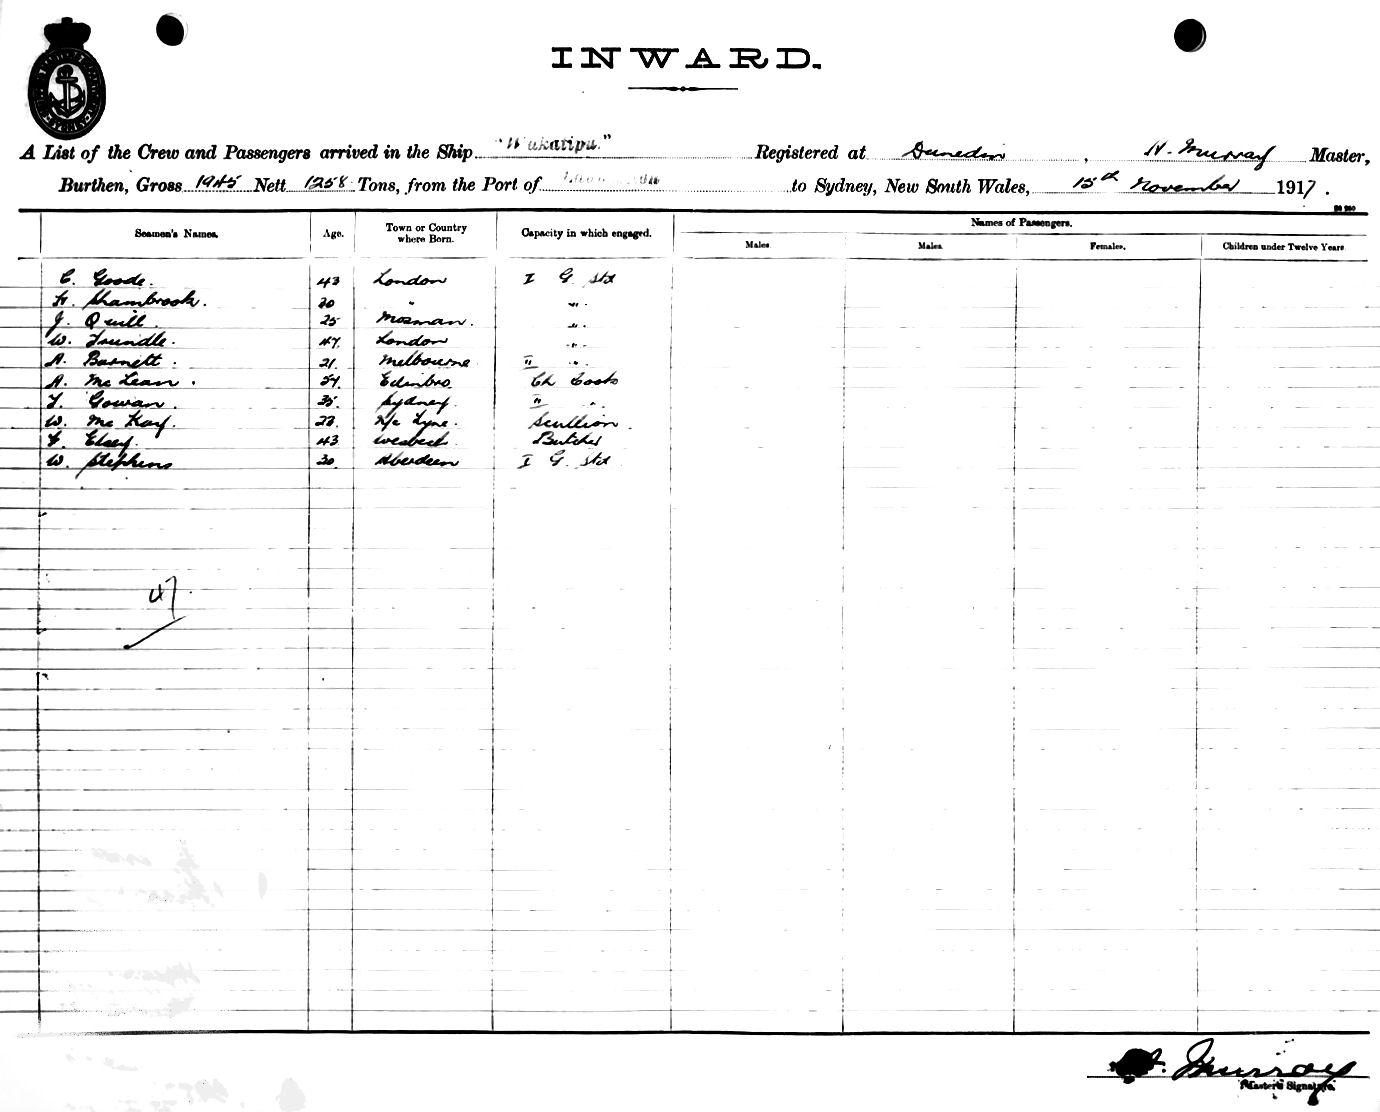 INWARD.
A List of the Crew and Passengers arrived in the Ship "Wakatipu." Registered at Dunedin, H. Murray Master,
Burthen, Gross 1945 Nett 1258 Tons, from the Port of to Sydney, New South Wales, 15th November 1917.
Names of Passengers.
Seamen's Names. Age. Town or Country where Born. Capacity in which engaged. Males. Males. Females. Children under Twelve Years
C. Goode. 43 London I G Std
H. Shambrook. 30 " " .
J. Quill 25 Mosman. "
W. Trundle. 47 London "
A. Barnett. 21 Melbourne II "
A. McLean. 54 Edinbro Ch Cook
T. Gowan. 35 Sydney. II "
W. McKay. 23 N/c Tyne. Scullion.
F. Elsey. 43 Butcher
W. Stephens 30 Aberdeen I G Std
47
H. Murray
Master's Signature.